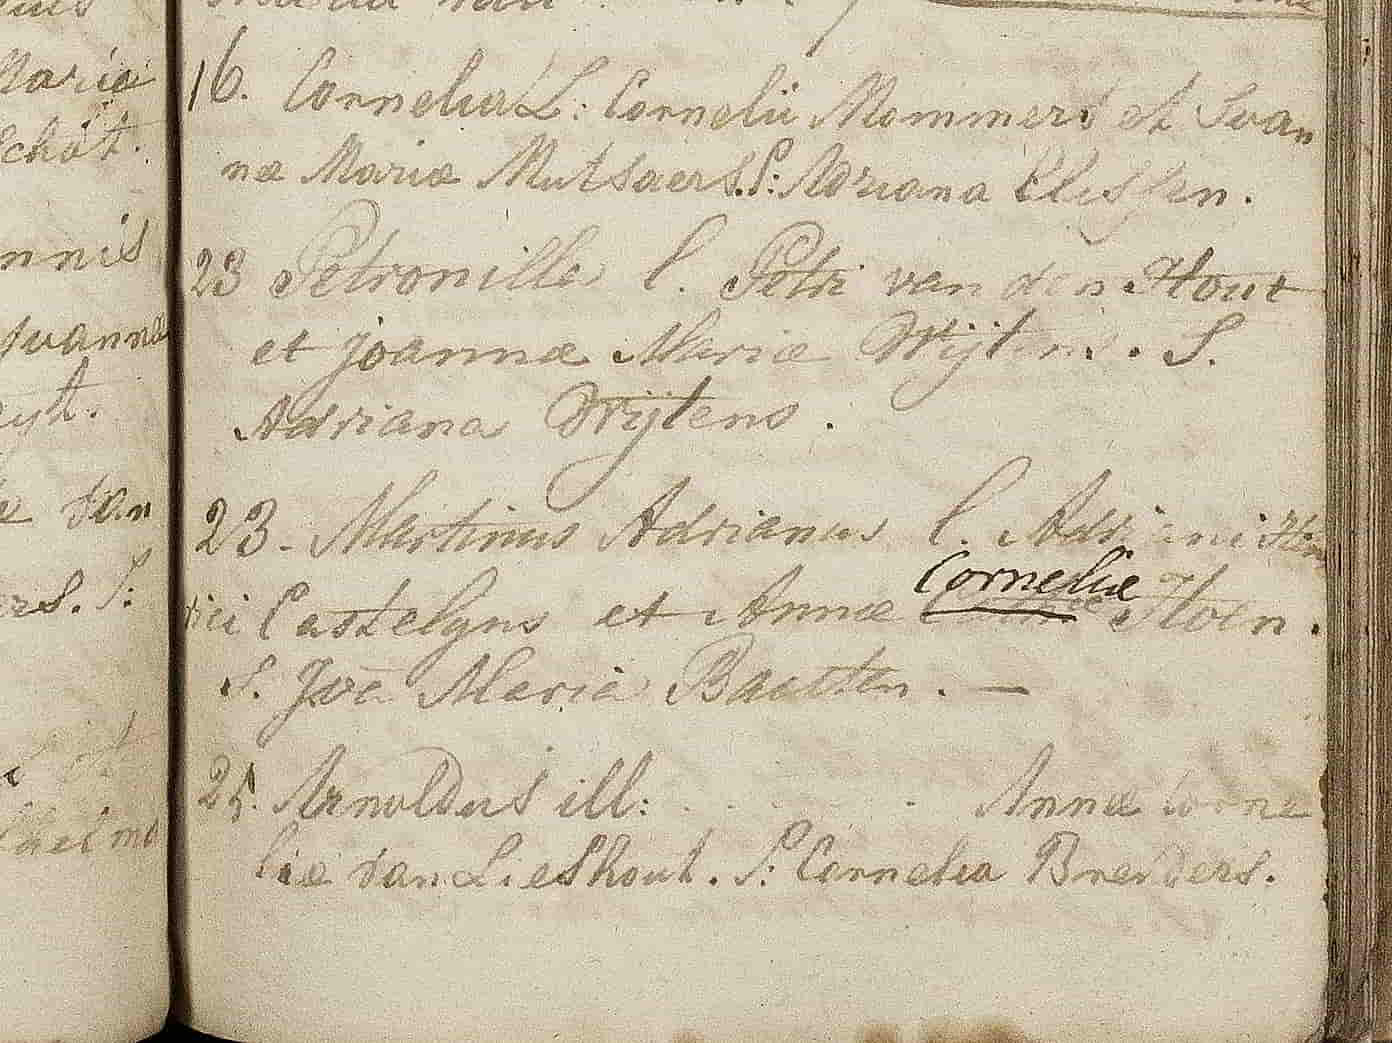 Maria
Schot.
nnis
Joannæ
van
16. Cornelia L: Cornelii Mommers et Joan
næ Mariæ Mutsaers. S: Adriana Elissen.
23 Petronilla l. Petri van den Hout
et Joannæ Mariæ Wijtens. S.
Adriana Wijtens.
23. Martinus Adrianus l. Adriani Hen
Corneliæ
rici Castelyns et Annæ Hoen.
S. Joa Maria Baetten. —
25. Arnoldus ill: . . . . Annæ Corne
liæ van Lieshout. S: Cornelia Breiders.